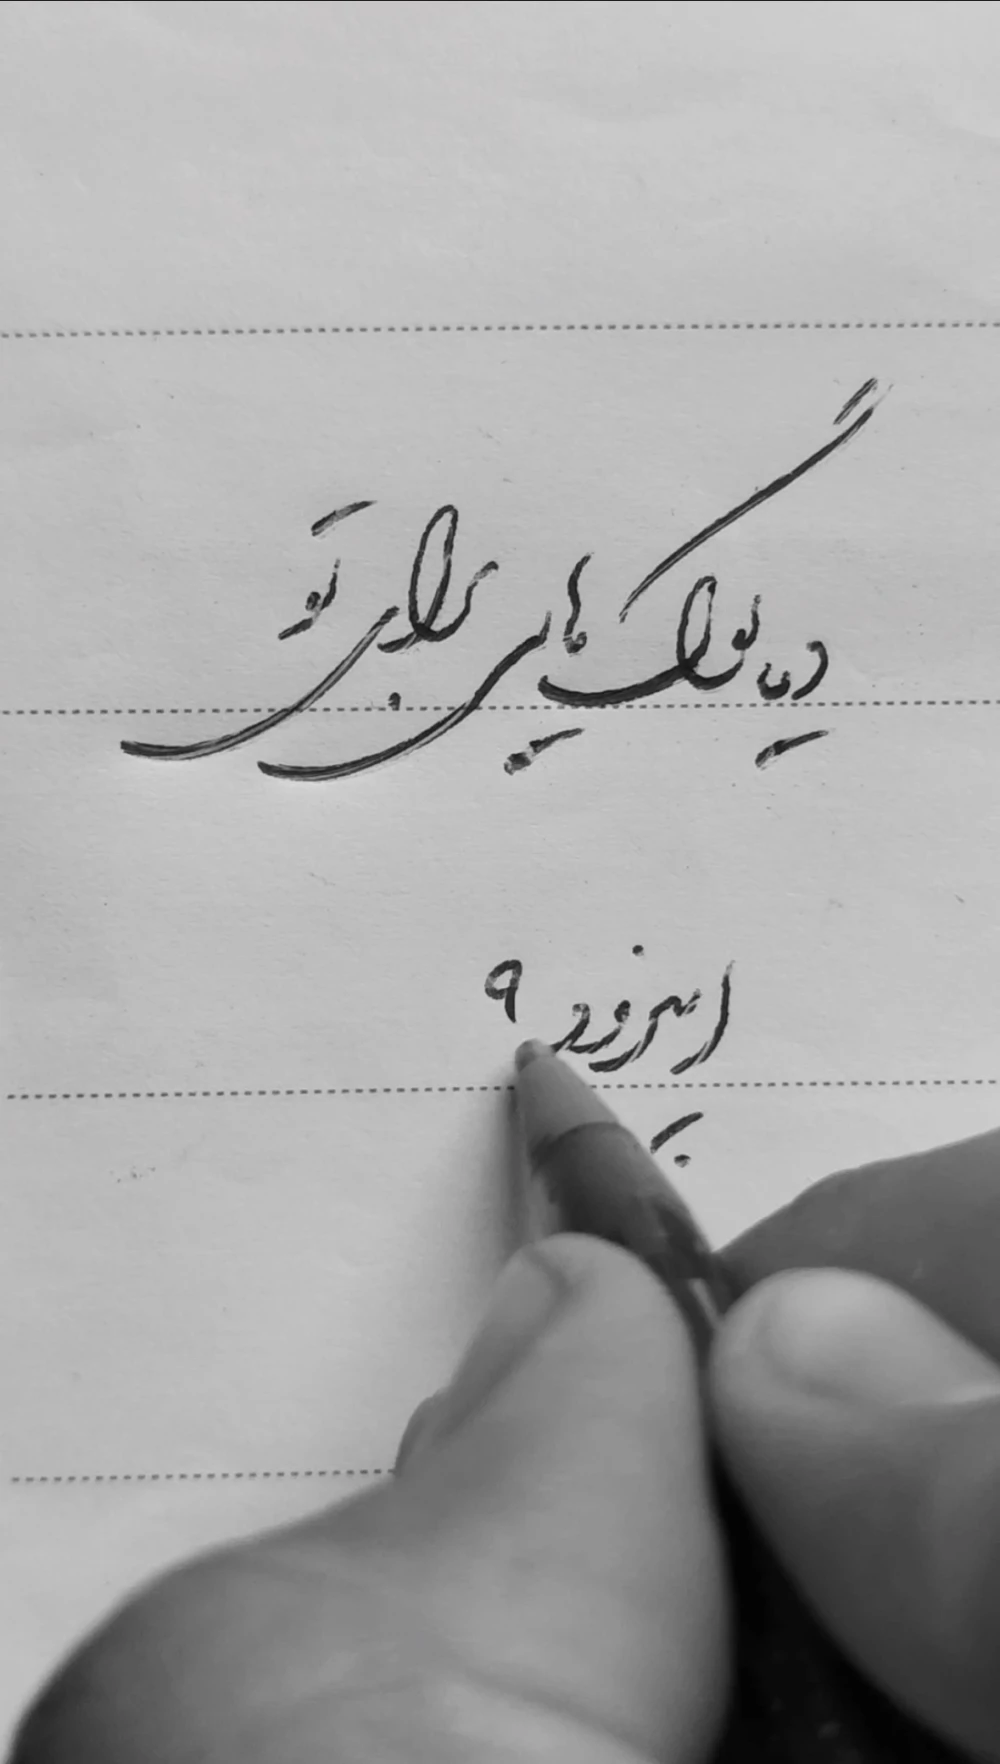 دیالوگ هایی برای تو
اپیزود ۹